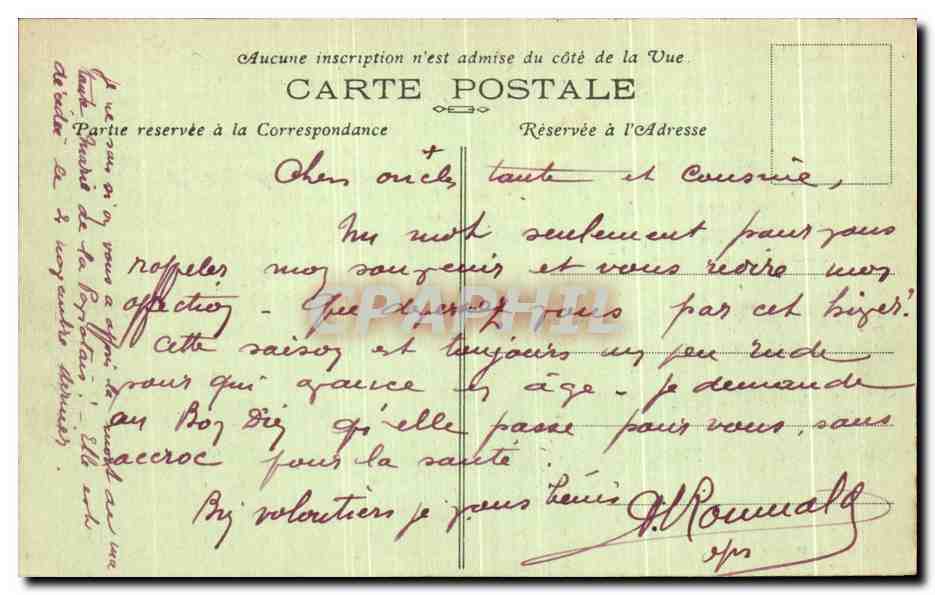 Aucune inscription n'est admise du côté de la Vue.
CARTE POSTALE
Partie reservée à la Correspondance
Réservée à l'Adresse
+
Chers oncle, tante et cousine,
Un mot seulement pour vous
rappeler mon souvenir et vous redire mon
affection - Que devenez vous par cet hiver?
Cette saison est toujours un peu rude
pour qui avance en âge - je demande
au Bon Dieu qu'elle passe pour vous, sans
accroc pour la santé.
Bien volontiers je vous bénis
Romuald
CPAPHIL
je ne sais si on vous a appris la mort de ma
tante Marie de la - Elle est
décédée le 2 novembre dernier.